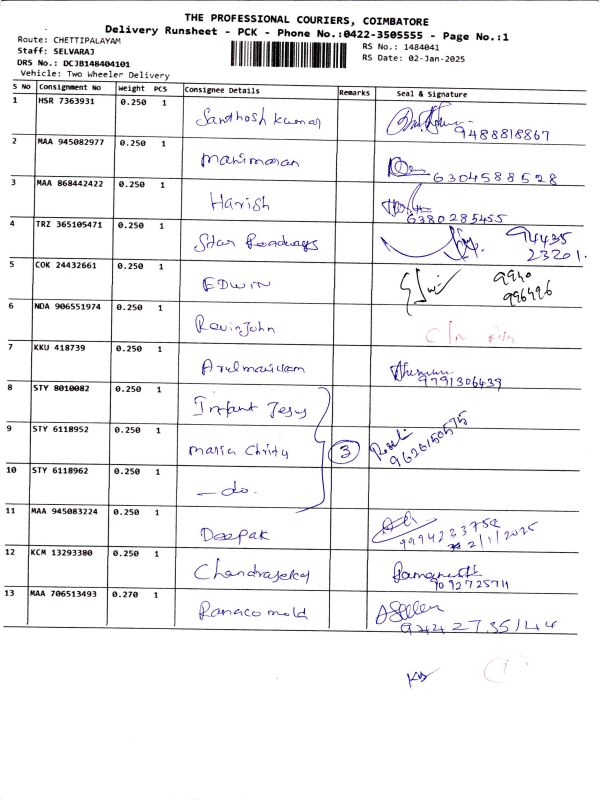 THE PROFESSIONAL COURIERS, COIMBATORE
Delivery Runsheet - PCK - Phone No.:0422-3505555 - Page No.:1
Route: CHETTIPALAYAM
RS No.: 1484041
Staff: SELVARAJ
RS Date: 02-Jan-2025
DRS No.: DCJB148404101
Vehicle: Two Wheeler Delivery
S No Consignment No Weight PCS Consignee Details Remarks Seal & Signature
1 HSR 7363931 0.250 1 Santhosh kumar 9488818867
2 MAA 945082977 0.250 1 manimaran 6304588528
3 MAA 868442422 0.250 1 Harish 6380285455
4 TRZ 365105471 0.250 1 Star Roadways 94435
23201.
5 COK 24432661 0.250 1 EDWIN Edwin 9940
996496
6 NDA 906551974 0.250 1 Kevin John C/N
7 KKU 418739 0.250 1 Arulmanickam 9791306439
8 STY 8010082 0.250 1 Infant Jesus
9 STY 6118952 0.250 1 maria Christy 3 9626150575
10 STY 6118962 0.250 1 - do.
11 MAA 945083224 0.250 1 Deepak 9994233752
2/1/2025
12 KCM 13293380 0.250 1 Chandrasekar 9092725711
13 MAA 706513493 0.270 1 Ranaco mold 9442735144